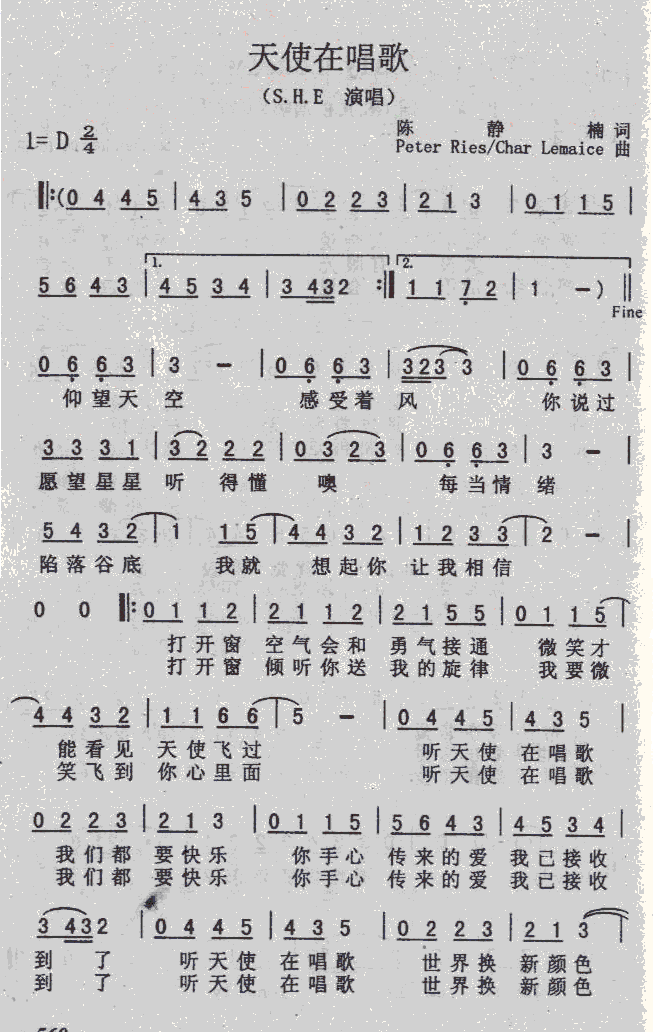 天使在唱歌
(S.H.E 演唱)
陈静楠 词
1=D 2/4
Peter Ries/Char Lemaice 曲
‖:(0 4 4 5 | 4 3 5 | 0 2 2 3 | 2 1 3 | 0 1 1 5 |
1. 2.
5 6 4 3 | 4 5 3 4 | 3 4 3 2 :‖ 1 1 7 2 | 1 - ) ‖
Fine
0 6 6 3 | 3 - | 0 6 6 3 | 3 2 3 3 | 0 6 6 3 |
仰望天空 感受着风 你说过
3 3 3 1 | 3 2 2 2 | 0 3 2 3 | 0 6 6 3 | 3 - |
愿望星星听 得懂 噢 每当情绪
5 4 3 2 | 1 1 5 | 4 4 3 2 | 1 2 3 3 | 2 - |
陷落谷底 我就 想起你 让我相信
0 0 ‖: 0 1 1 2 | 2 1 1 2 | 2 1 5 5 | 0 1 1 5 |
打开窗 空气会和 勇气接通 微笑才
打开窗 倾听你送 我的旋律 我要微
4 4 3 2 | 1 1 6 6 | 5 - | 0 4 4 5 | 4 3 5 |
能看见 天使飞过 听天使 在唱歌
笑飞到 你心里面 听天使 在唱歌
0 2 2 3 | 2 1 3 | 0 1 1 5 | 5 6 4 3 | 4 5 3 4 |
我们都 要快乐 你手心 传来的爱 我已接收
我们都 要快乐 你手心 传来的爱 我已接收
3 4 3 2 | 0 4 4 5 | 4 3 5 | 0 2 2 3 | 2 1 3 |
到了 听天使 在唱歌 世界换 新颜色
到了 听天使 在唱歌 世界换 新颜色